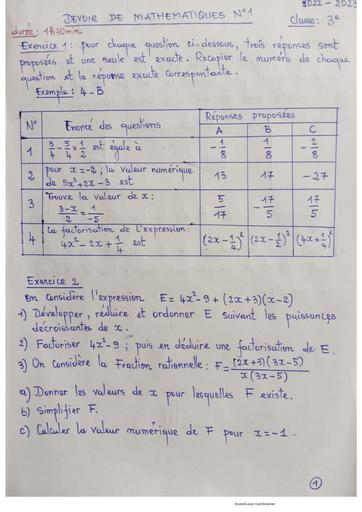 2022 - 2023
DEVOIR DE MATHEMATIQUES N°1
durée : 1h30min
Classe : 3e
Exercice 1 : pour chaque question ci-dessous, trois réponses sont
proposées et une seule est exacte. Recopier le numéro de chaque
question et la réponse exacte correspontante.
Exemple : 4 - B
N° Enoncé des questions Réponses proposées
A B C
1 3/4 - 5/4 × 1/2 est égale à -1/8 1/8 -2/8
2 pour x = -2 ; la valeur numérique
de 5x² + 2x - 3 est 13 17 -27
3 Trouve la valeur de x :
(3-x)/2 = 1/-5 5/17 -17/5 17/5
4 La factorisation de l'expression :
4x² - 2x + 1/4 est (2x - 1/4)² (2x - 1/2)² (4x + 1/4)²
Exercice 2
On considère l'expression E = 4x² - 9 + (2x+3)(x-2)
1) Développer, réduire et ordonner E suivant les puissances
décroissantes de x.
2) Factoriser 4x² - 9 ; puis en déduire une factorisation de E.
3) On considère la Fraction rationnelle : F = (2x+3)(3x-5)/x(3x-5)
a) Donner les valeurs de x pour lesquelles F existe.
b) Simplifier F.
c) Calculer la valeur numérique de F pour x = -1.
1
Scanné avec CamScanner